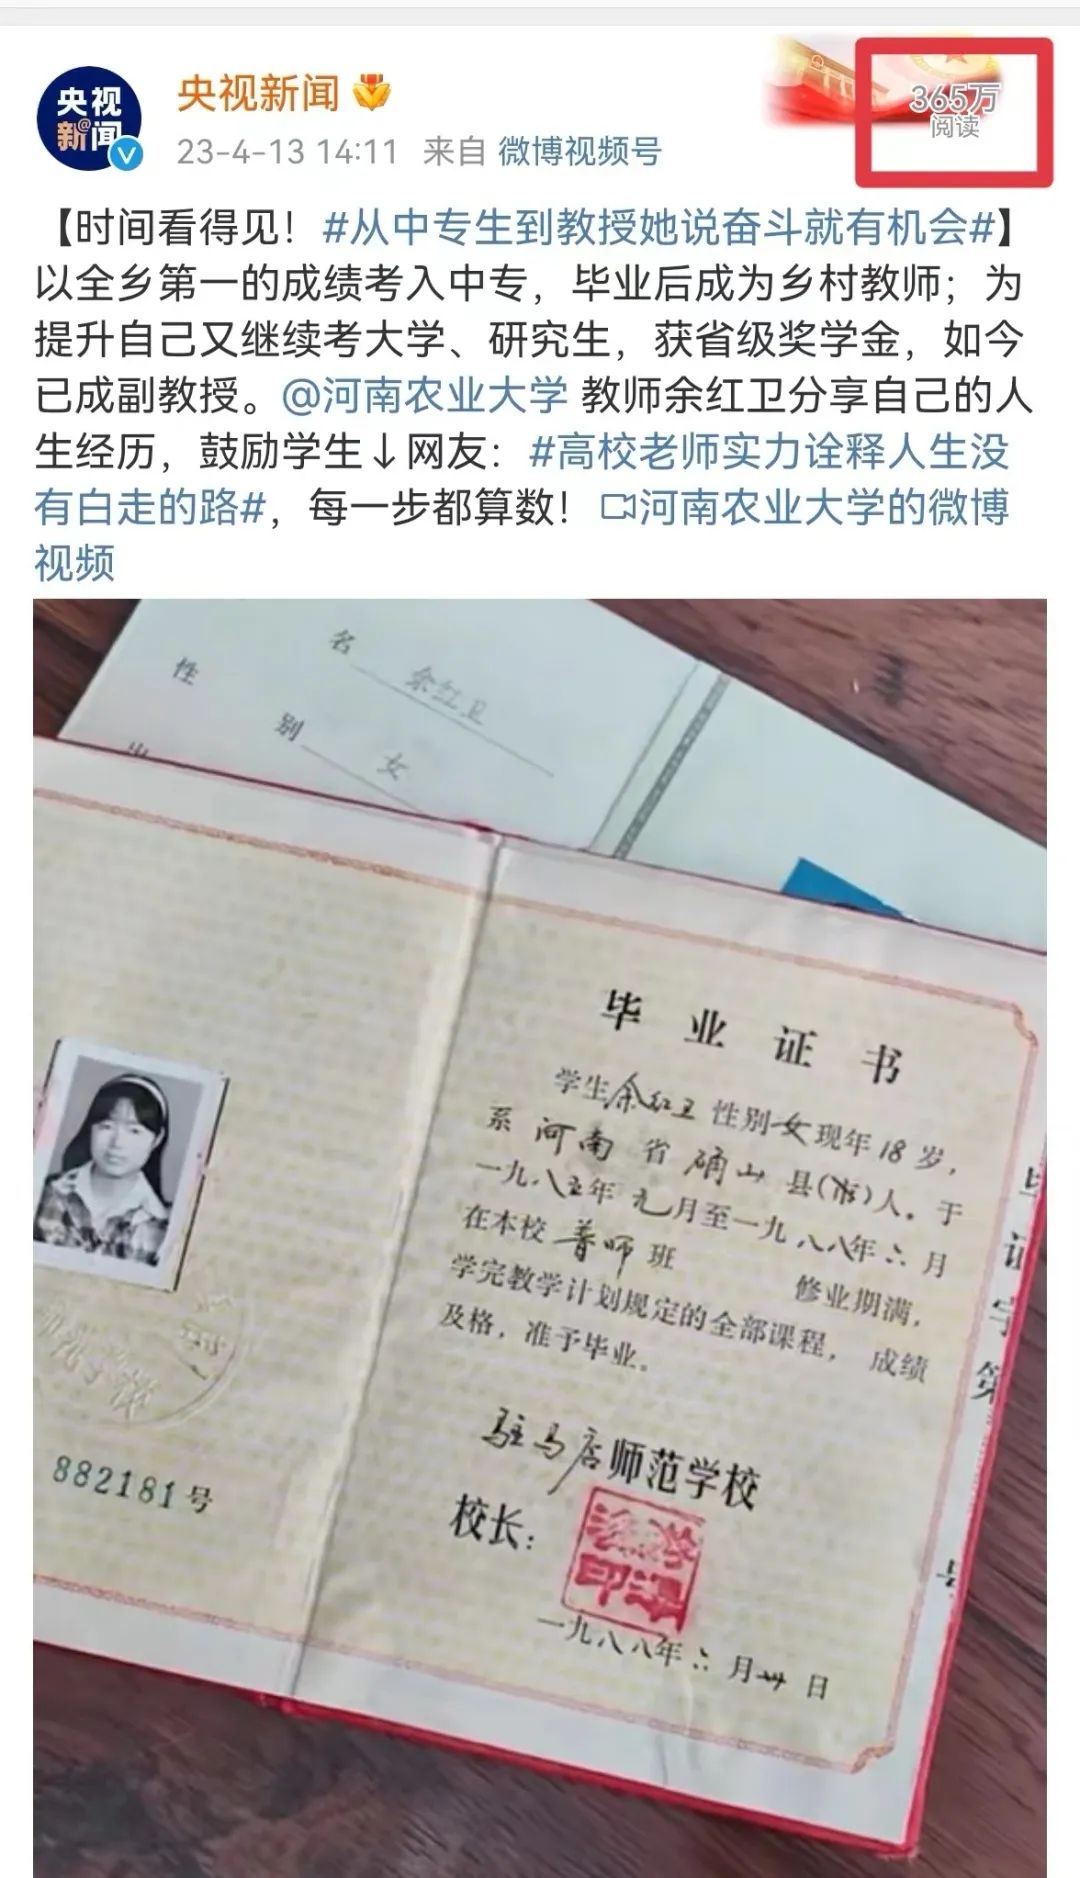 央视
新@闻
央视新闻
365万
阅读
23-4-13 14:11 来自 微博视频号
【时间看得见！#从中专生到教授她说奋斗就有机会#】
以全乡第一的成绩考入中专，毕业后成为乡村教师；为
提升自己又继续考大学、研究生，获省级奖学金，如今
已成副教授。@河南农业大学 教师余红卫分享自己的人
生经历，鼓励学生↓网友：#高校老师实力诠释人生没
有白走的路#，每一步都算数！河南农业大学的微博
视频
名 余红卫
性
别 女
毕业证书
学生余红卫性别女现年18岁，
系河南省确山县(市)人。于
一九八五年元月至一九八八年六月
在本校普师班 修业期满，
学完教学计划规定的全部课程，成绩
及格，准予毕业。
驻马店师范学校
校长：
一九八八年六月卅日
882181号
毕
证
字
第
号